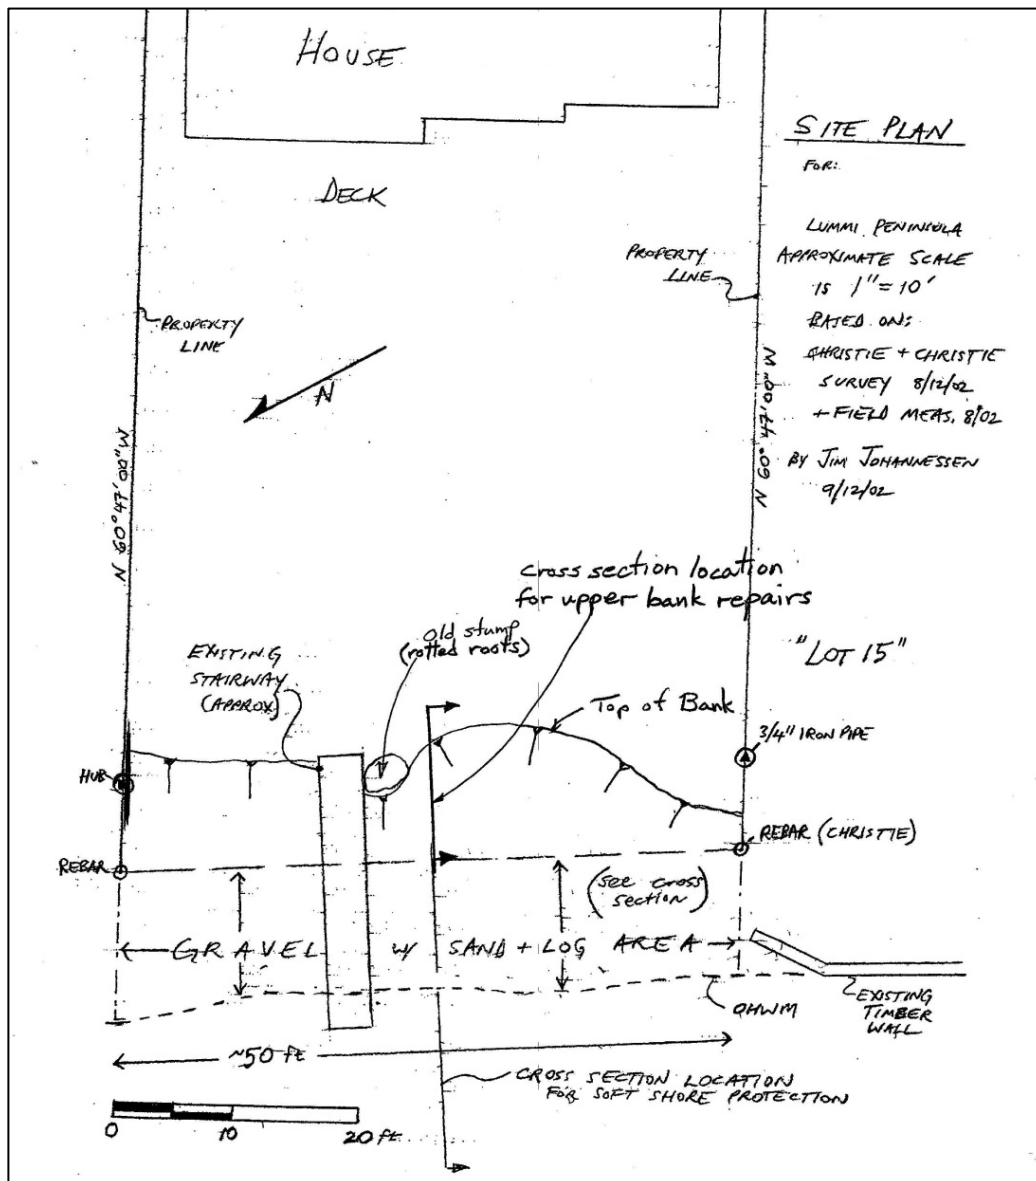 HOUSE
DECK
SITE PLAN
FOR:
LUMMI PENINSULA
APPROXIMATE SCALE
IS 1"=10'
BASED ON:
CHRISTIE + CHRISTIE
SURVEY 8/12/02
+ FIELD MEAS. 8/02
BY JIM JOHANNESSEN
9/12/02
PROPERTY
LINE
PROPERTY
LINE
N
N 60°47'00"W
N 60°47'00"W
cross section location
for upper bank repairs
old stump
(rotted roots)
EXISTING
STAIRWAY
(APPROX)
"LOT 15"
Top of Bank
3/4" IRON PIPE
HUB
REBAR (CHRISTIE)
REBAR
(see cross
section)
GRAVEL W/ SAND + LOG AREA
OHWM
EXISTING
TIMBER
WALL
~50 ft
CROSS SECTION LOCATION
FOR SOFT SHORE PROTECTION
0 10 20 ft